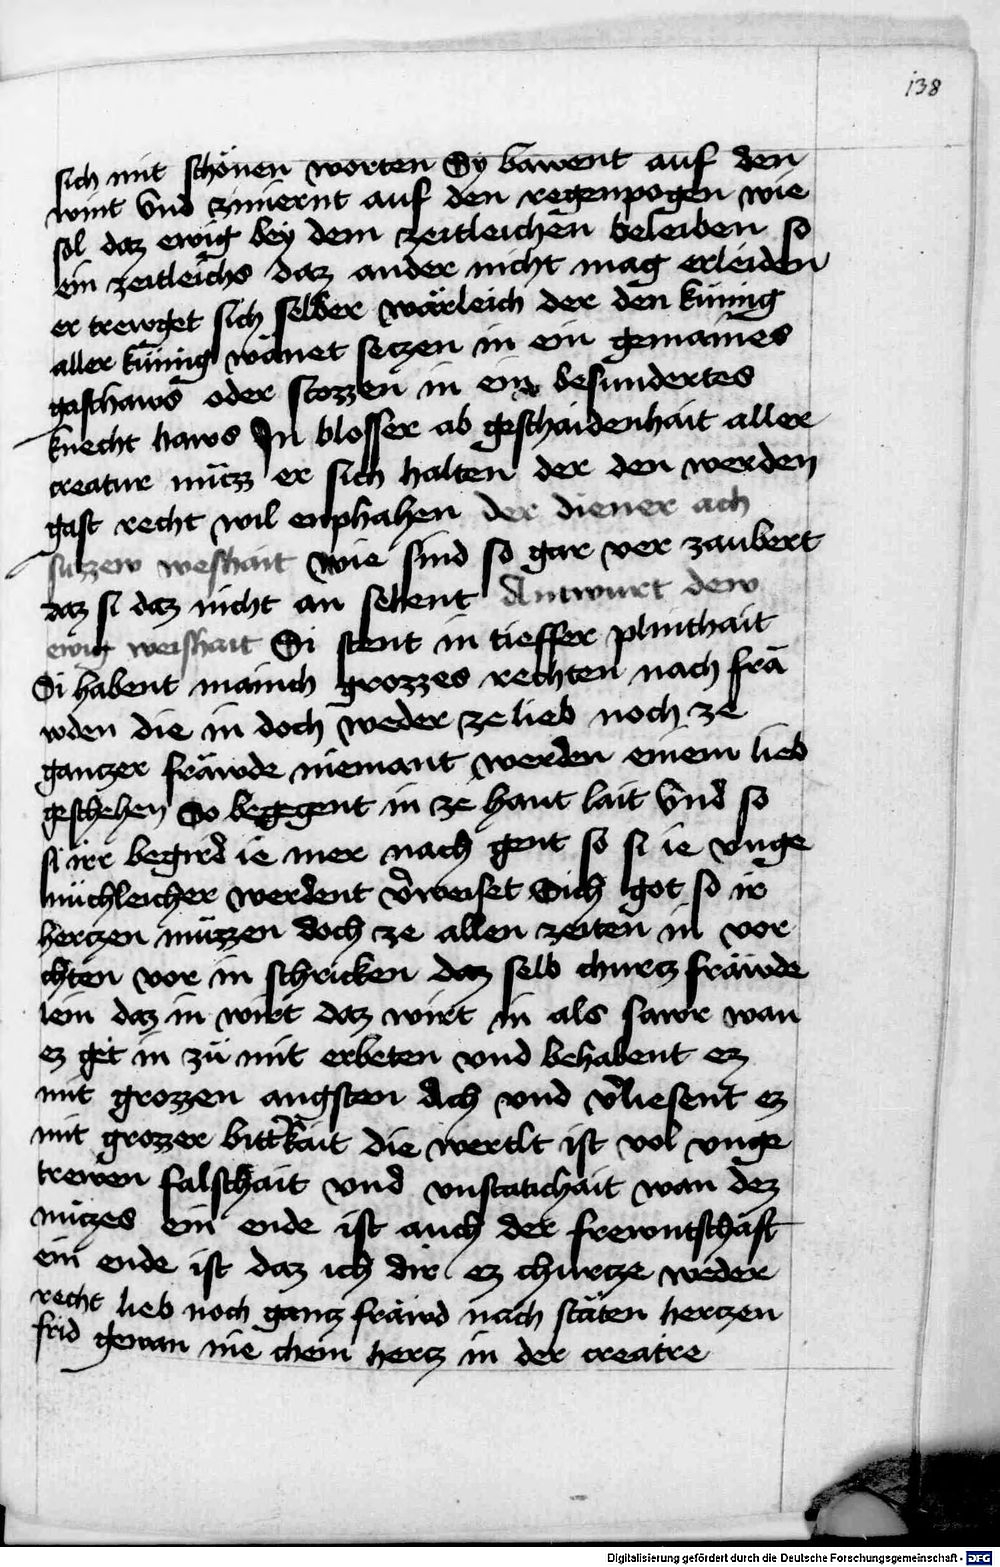 138
sich mit schönen worten Sy bawent auf den
wint vnd zimernt auf den regenpogen wie
sol daz ewig bey dem zeitleichen beleiben so
ein zeitleichs daz ander nicht mag erleiden
er trewget sich selber wärleich der den künig
aller künig wänet seczen in ein gemaines
gasthaws oder stozzen in ein besundertes
knecht haws In blosser ab geschaidenhait aller
creatur müczz er sich halten der den werden
gast recht wil enphahen der diener ach
süzzew weshait wie sind so gar ver zaubert
daz si daz nicht an sehent Antwurt dew
ewig weishait Si stent in tieffer plinthait
Si habent mainch grozzes vechten nach frä
wden die in doch weder ze lieb noch ze
ganczer fräwde niemant werden einem lieb
geschehen So begegent in ze hant lait Vnd so
si irr begird ie mer nach gent so si ie vnge
müchleicher werdent v̉weiset Sich got so ir
herczen müzzen doch ze allen zeiten in vor
chten vor in schricken daz selb churcz fräwde
lein daz in wirt daz wirt in als sawr wan
ez get in zü mit erbeten vnd behabent ez
mit grozzen angsten Ach vnd v̉liesent ez
mit grozzer bitt̉kait die werlt ist vol vnge
trewen falschait vnd vnstatichait wan dez
nüczes ein ende ist auch der frewntschaft
ein ende ist daz ich dir ez churcze weder
recht lieb noch gancz fräwd nach stäten herczen
frid gewan nie chein hercz in der creatre
Digitalisierung gefördert durch die Deutsche Forschungsgemeinschaft - DFG